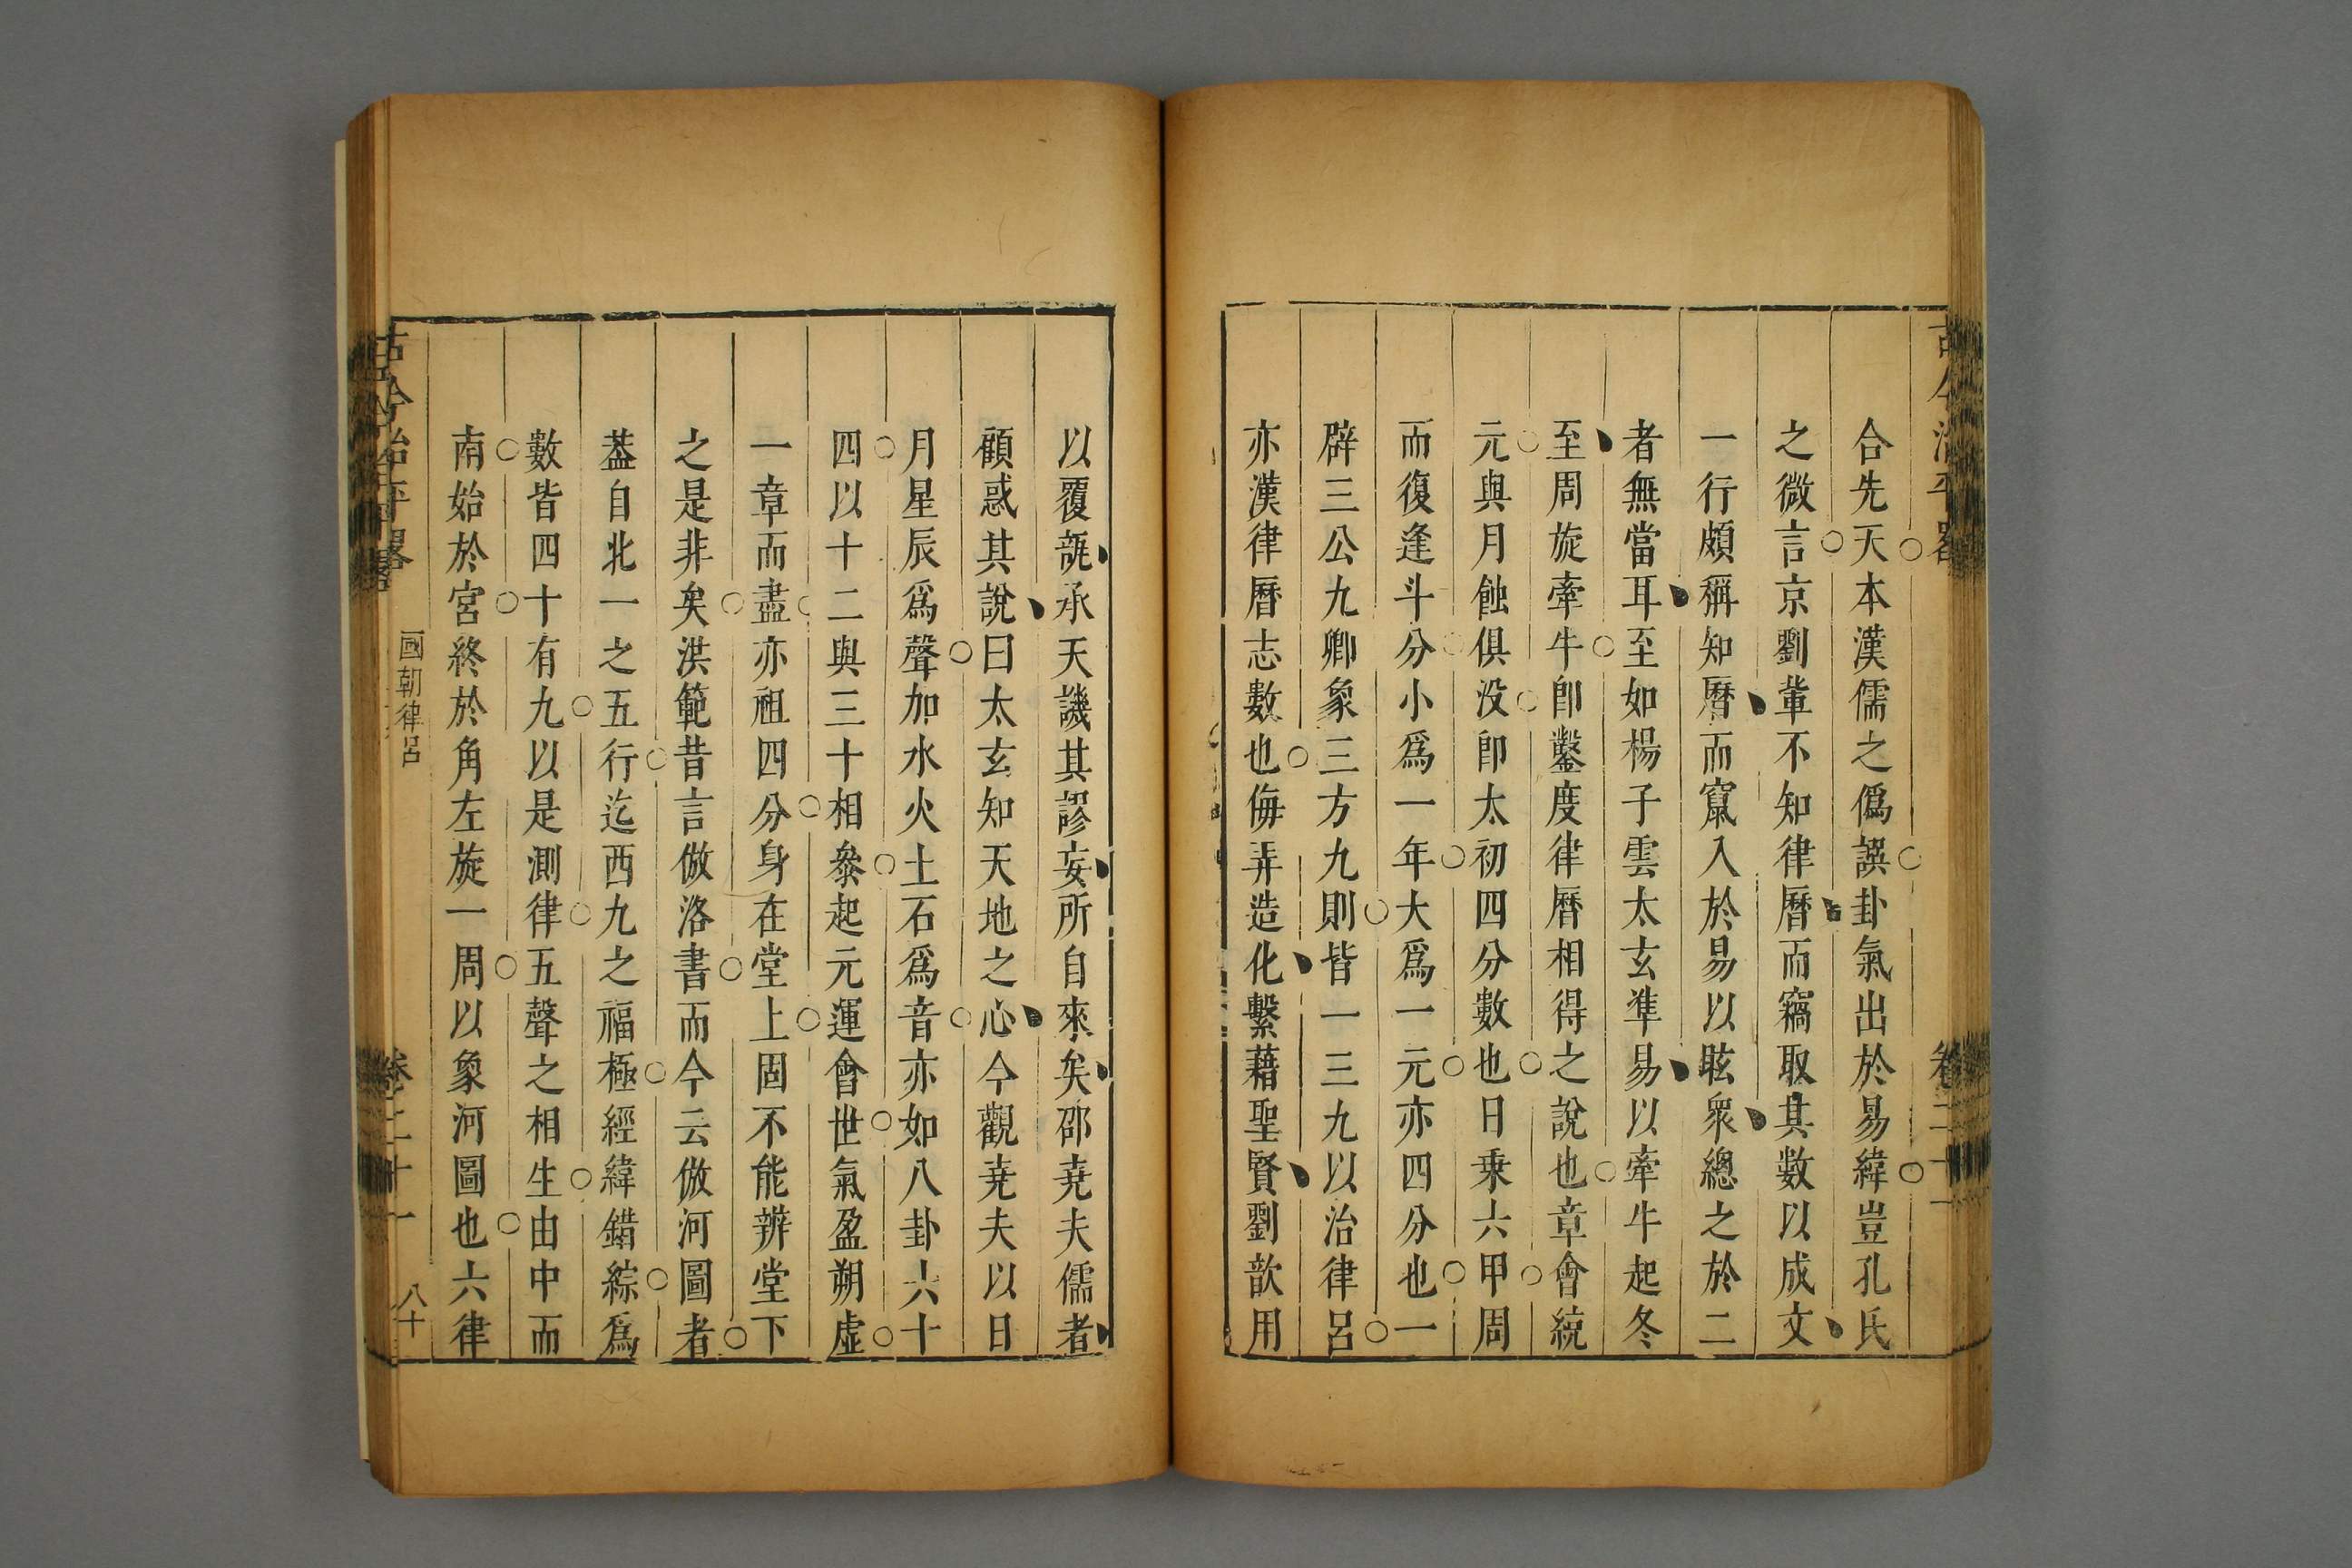 合先天本漢儒之僞誤卦氣出於易緯豈孔氏
之微言京劉軰不知律曆而竊取其數以成文
一行頗稱知曆而竄入於易以眩衆總之於二
者無當耳至如楊子雲太玄準易以牽牛起冬
至周旋牽牛卽鑿度律曆相得之說也章會統
元與月蝕俱没卽太初四分數也日乗六甲周
而復逢斗分小爲一年大爲一元亦四分也一
辟三公九卿象三方九則皆一三九以治律呂
亦漢律曆志數也侮弄造化繫藉聖賢劉歆用
以覆瓿承天譏其謬妄所自來矣邵堯夫儒者
顧惑其說曰太玄知天地之心今觀堯夫以日
月星辰爲聲加水火土石爲音亦如八卦六十
四以十二與三十相叅起元運會世氣盈朔虛
一章而盡亦祖四分身在堂上固不能辨堂下
之是非矣洪範昔言倣洛書而今云倣河圖者
葢自北一之五行迄西九之福極經緯錯綜爲
數皆四十有九以是測律五聲之相生由中而
南始於宮終於角左旋一周以象河圖也六律
古今治平畧
國朝律呂
卷二十一
八十